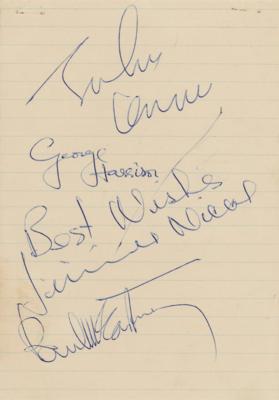 John
Lennon
George
Harrison
Best Wishes
Jimmie Nicol
Paul McCartney